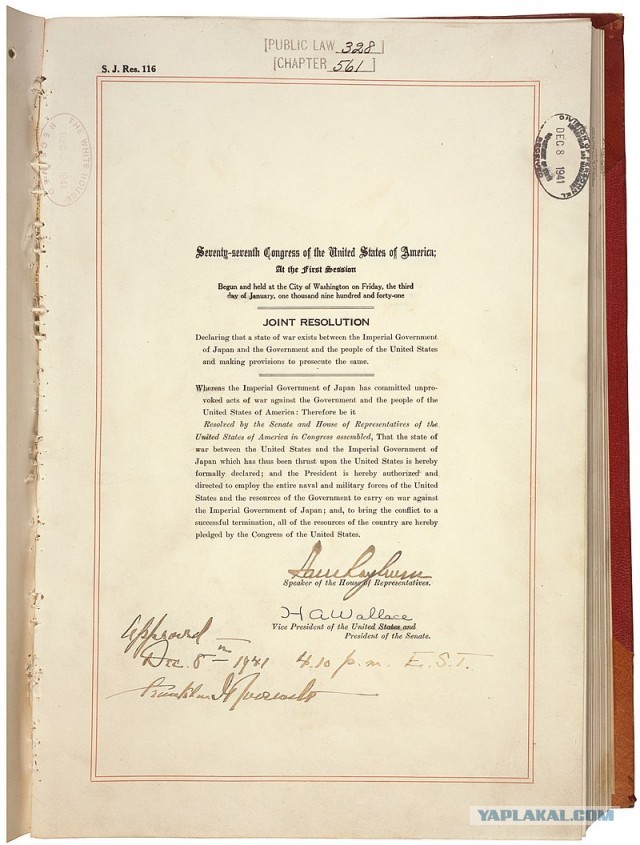 [PUBLIC LAW 328]
[CHAPTER 561]
S. J. Res. 116
THE WHITE HOUSE
DEC 8 1941
RECEIVED
DIVISION OF
DEC 8 1941
RECEIVED
Seventy-seventh Congress of the United States of America;
At the First Session
Begun and held at the City of Washington on Friday, the third
day of January, one thousand nine hundred and forty-one
JOINT RESOLUTION
Declaring that a state of war exists between the Imperial Government
of Japan and the Government and the people of the United States
and making provisions to prosecute the same.
Whereas the Imperial Government of Japan has committed unpro-
voked acts of war against the Government and the people of the
United States of America: Therefore be it
Resolved by the Senate and House of Representatives of the
United States of America in Congress assembled, That the state of
war between the United States and the Imperial Government of
Japan which has thus been thrust upon the United States is hereby
formally declared; and the President is hereby authorized and
directed to employ the entire naval and military forces of the United
States and the resources of the Government to carry on war against
the Imperial Government of Japan; and, to bring the conflict to a
successful termination, all of the resources of the country are hereby
pledged by the Congress of the United States.
Sam Rayburn
Speaker of the House of Representatives.
H A Wallace
Vice President of the United States and
President of the Senate.
Approved
Dec. 8th 1941 4.10 p.m. E.S.T.
Franklin D Roosevelt
YAPLAKAL.COM